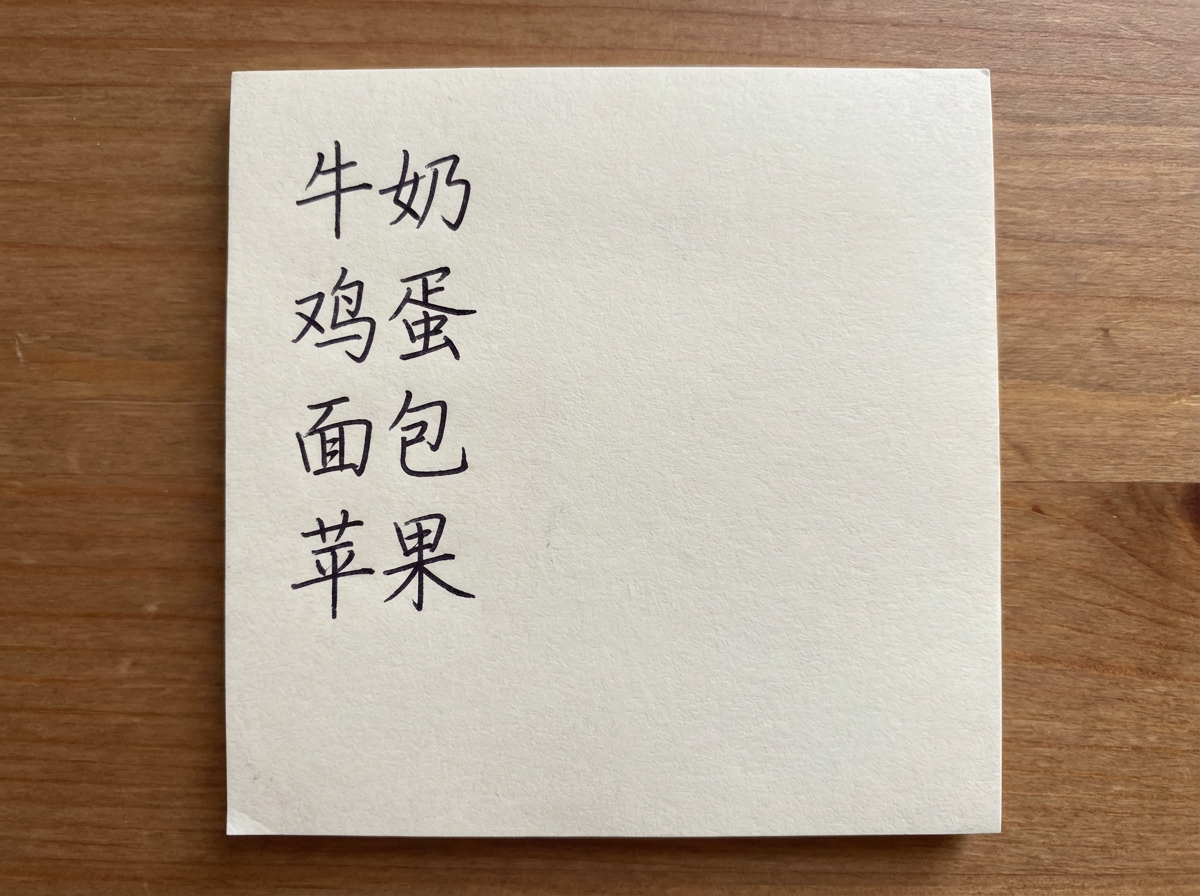 牛奶
鸡蛋
面包
苹果